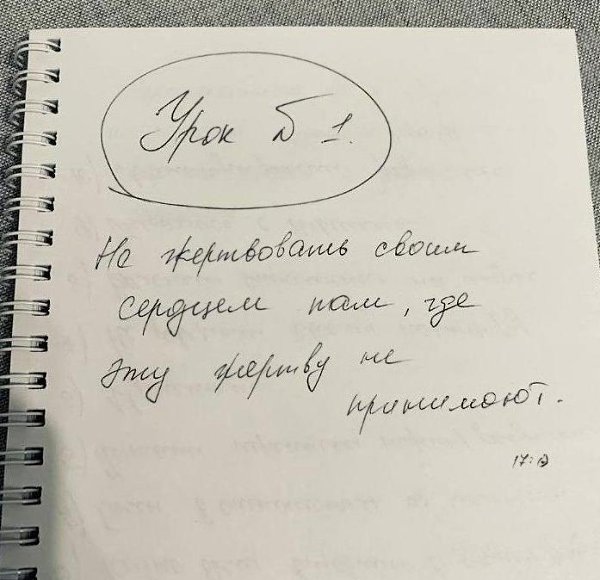 Урок № 1.
Не жертвовать своим
сердцем там, где
эту жертву не
принимают.